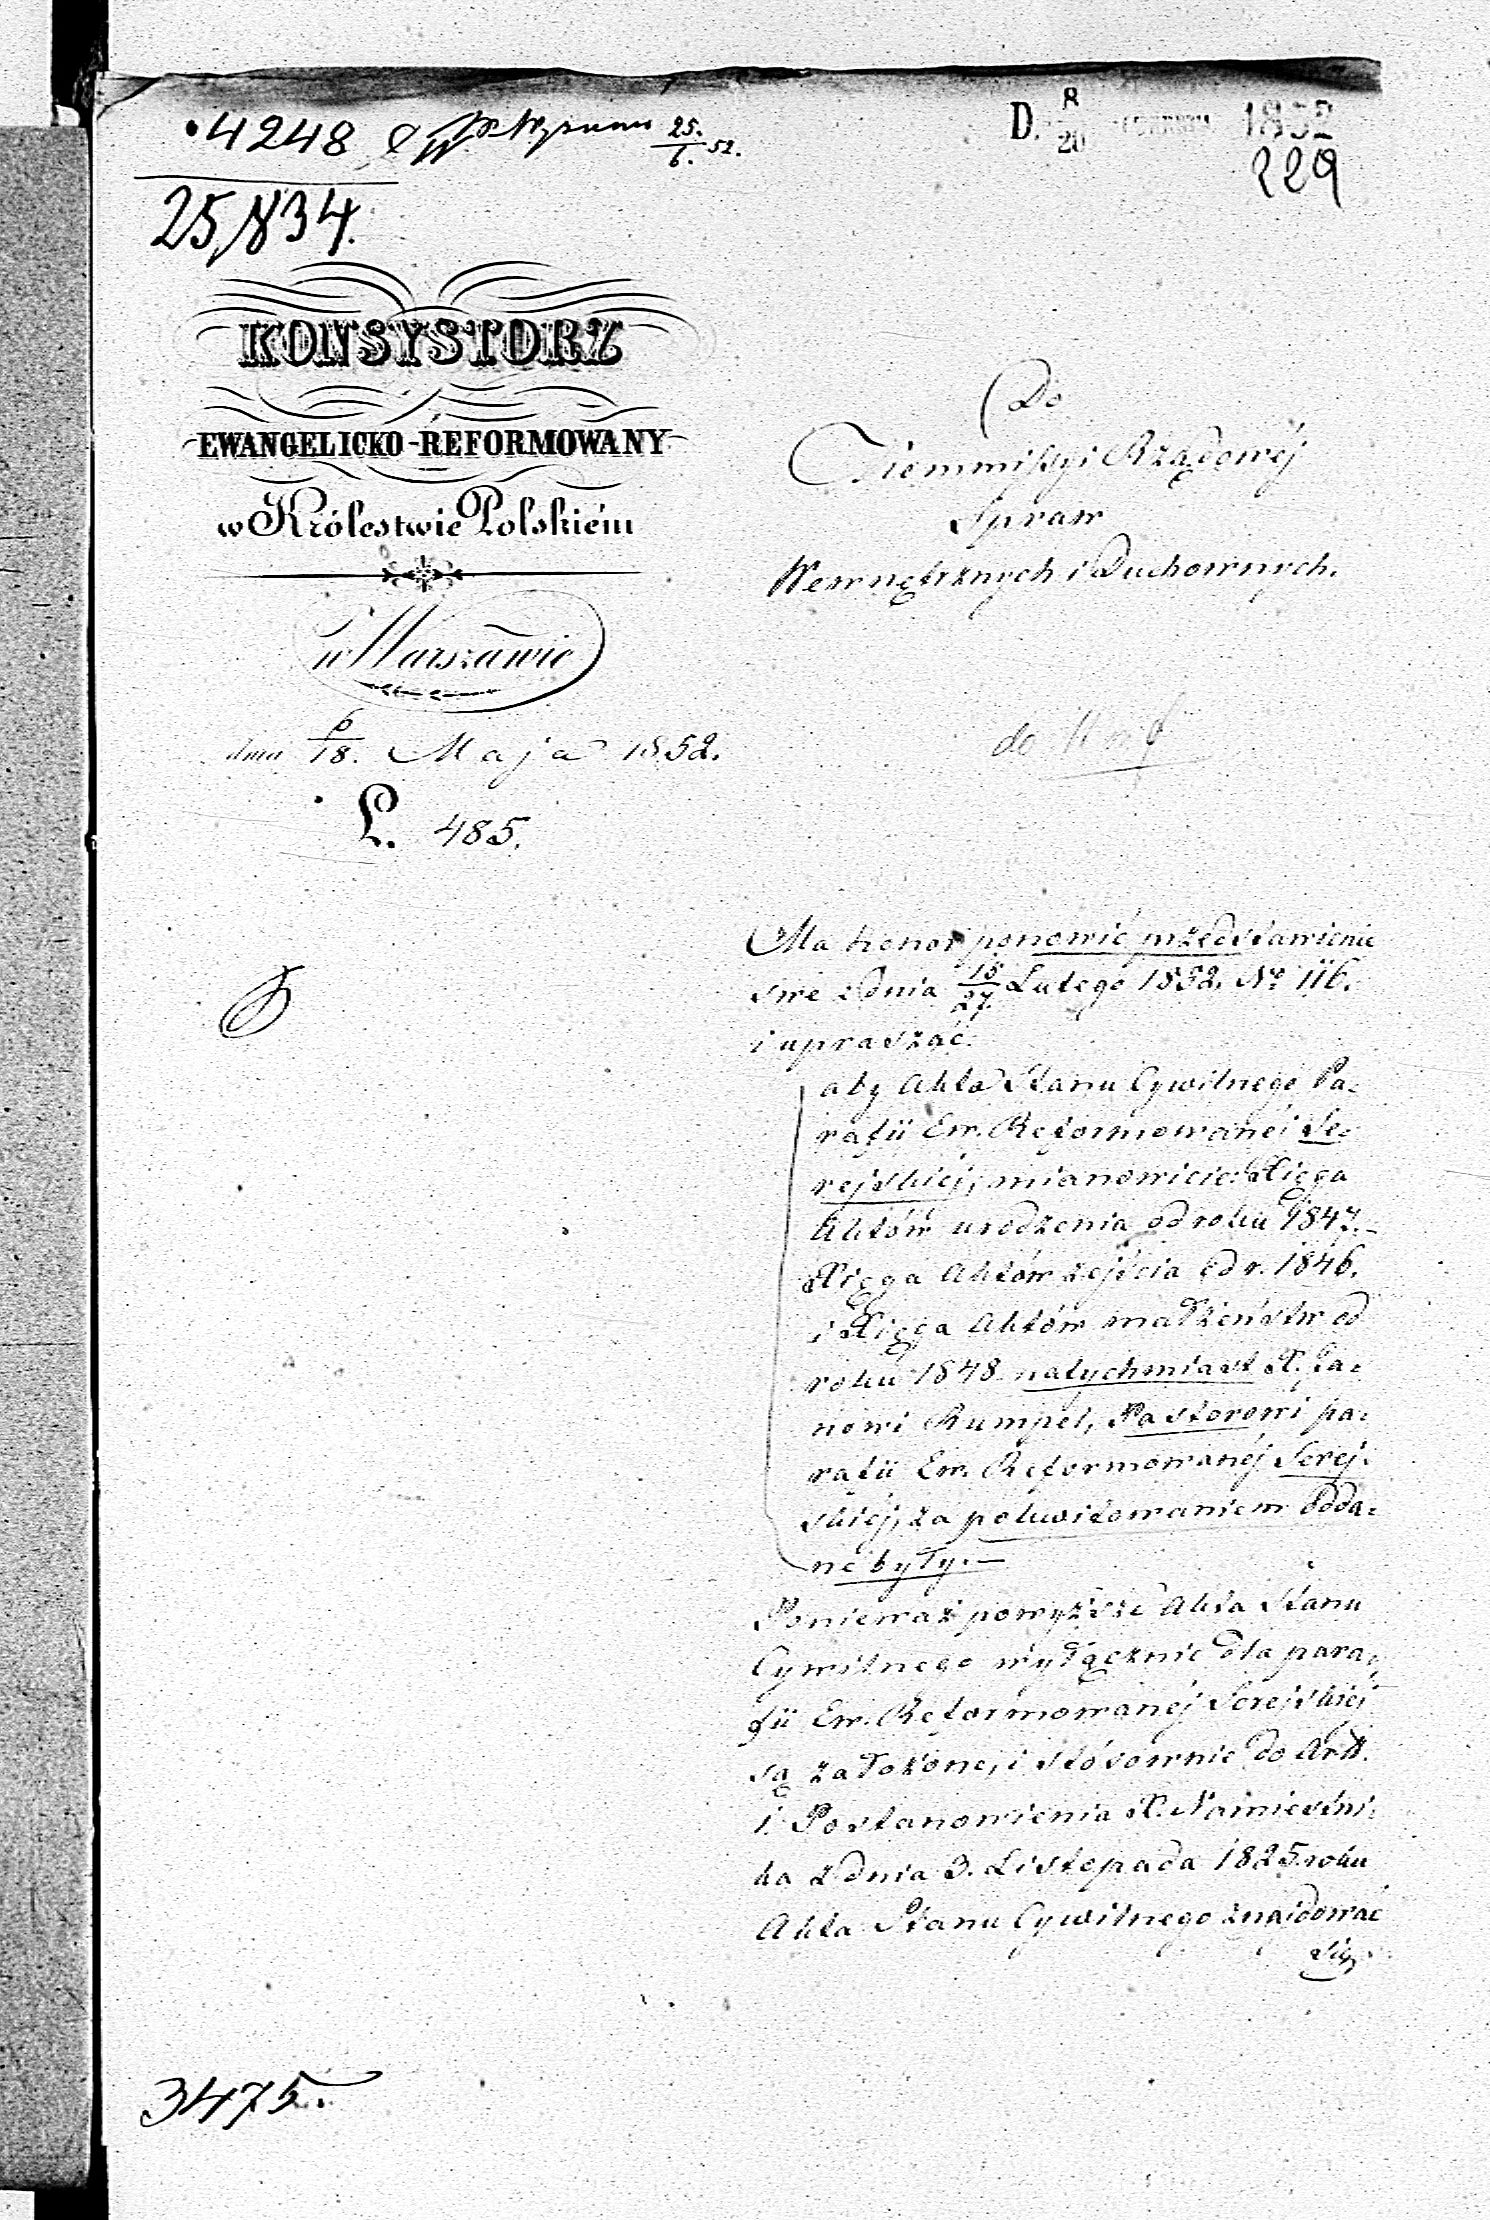 4248
25,834.
25./6. 52.
D. 8/20 1852
229
KONSYSTORZ
EWANGELICKO-REFORMOWANY
w Królestwie Polskiém
w Warszawie
dnia 6/18. Maja 1852.
L. 485.
Do
Kommissyi Rządowéj
Spraw
Wewnętrznych i Duchownych.
do
Ma honor ponowić przedstawienie
swe z dnia 15/27. Lutego 1852. No 116.
i upraszać:
aby Akta Stanu Cywilnego Pa-
rafii Ew. Reformowanéj Se-
rejskiej, mianowicie: Xięga
Aktów urodzenia od roku 1847.-
Xięga Aktów zejścia od r. 1846.
i Xięga Aktów małżeństw od
roku 1848 natychmiast X. Ja-
nowi Rumpel, Pastorowi pa-
rafii Ew. Reformowanéj Serej-
skiéj, za pokwitowaniem odda-
ne były.—
Ponieważ powyższe Akta Stanu
Cywilnego wyłącznie dla para-
fii Ew. Reformowanéj Serejskiéj
są założone, i stósownie do Artt.
1. Postanowienia X. Namiestni-
ka z dnia 3. Listopada 1825 roku
Akta Stanu Cywilnego znajdować
się
3475.